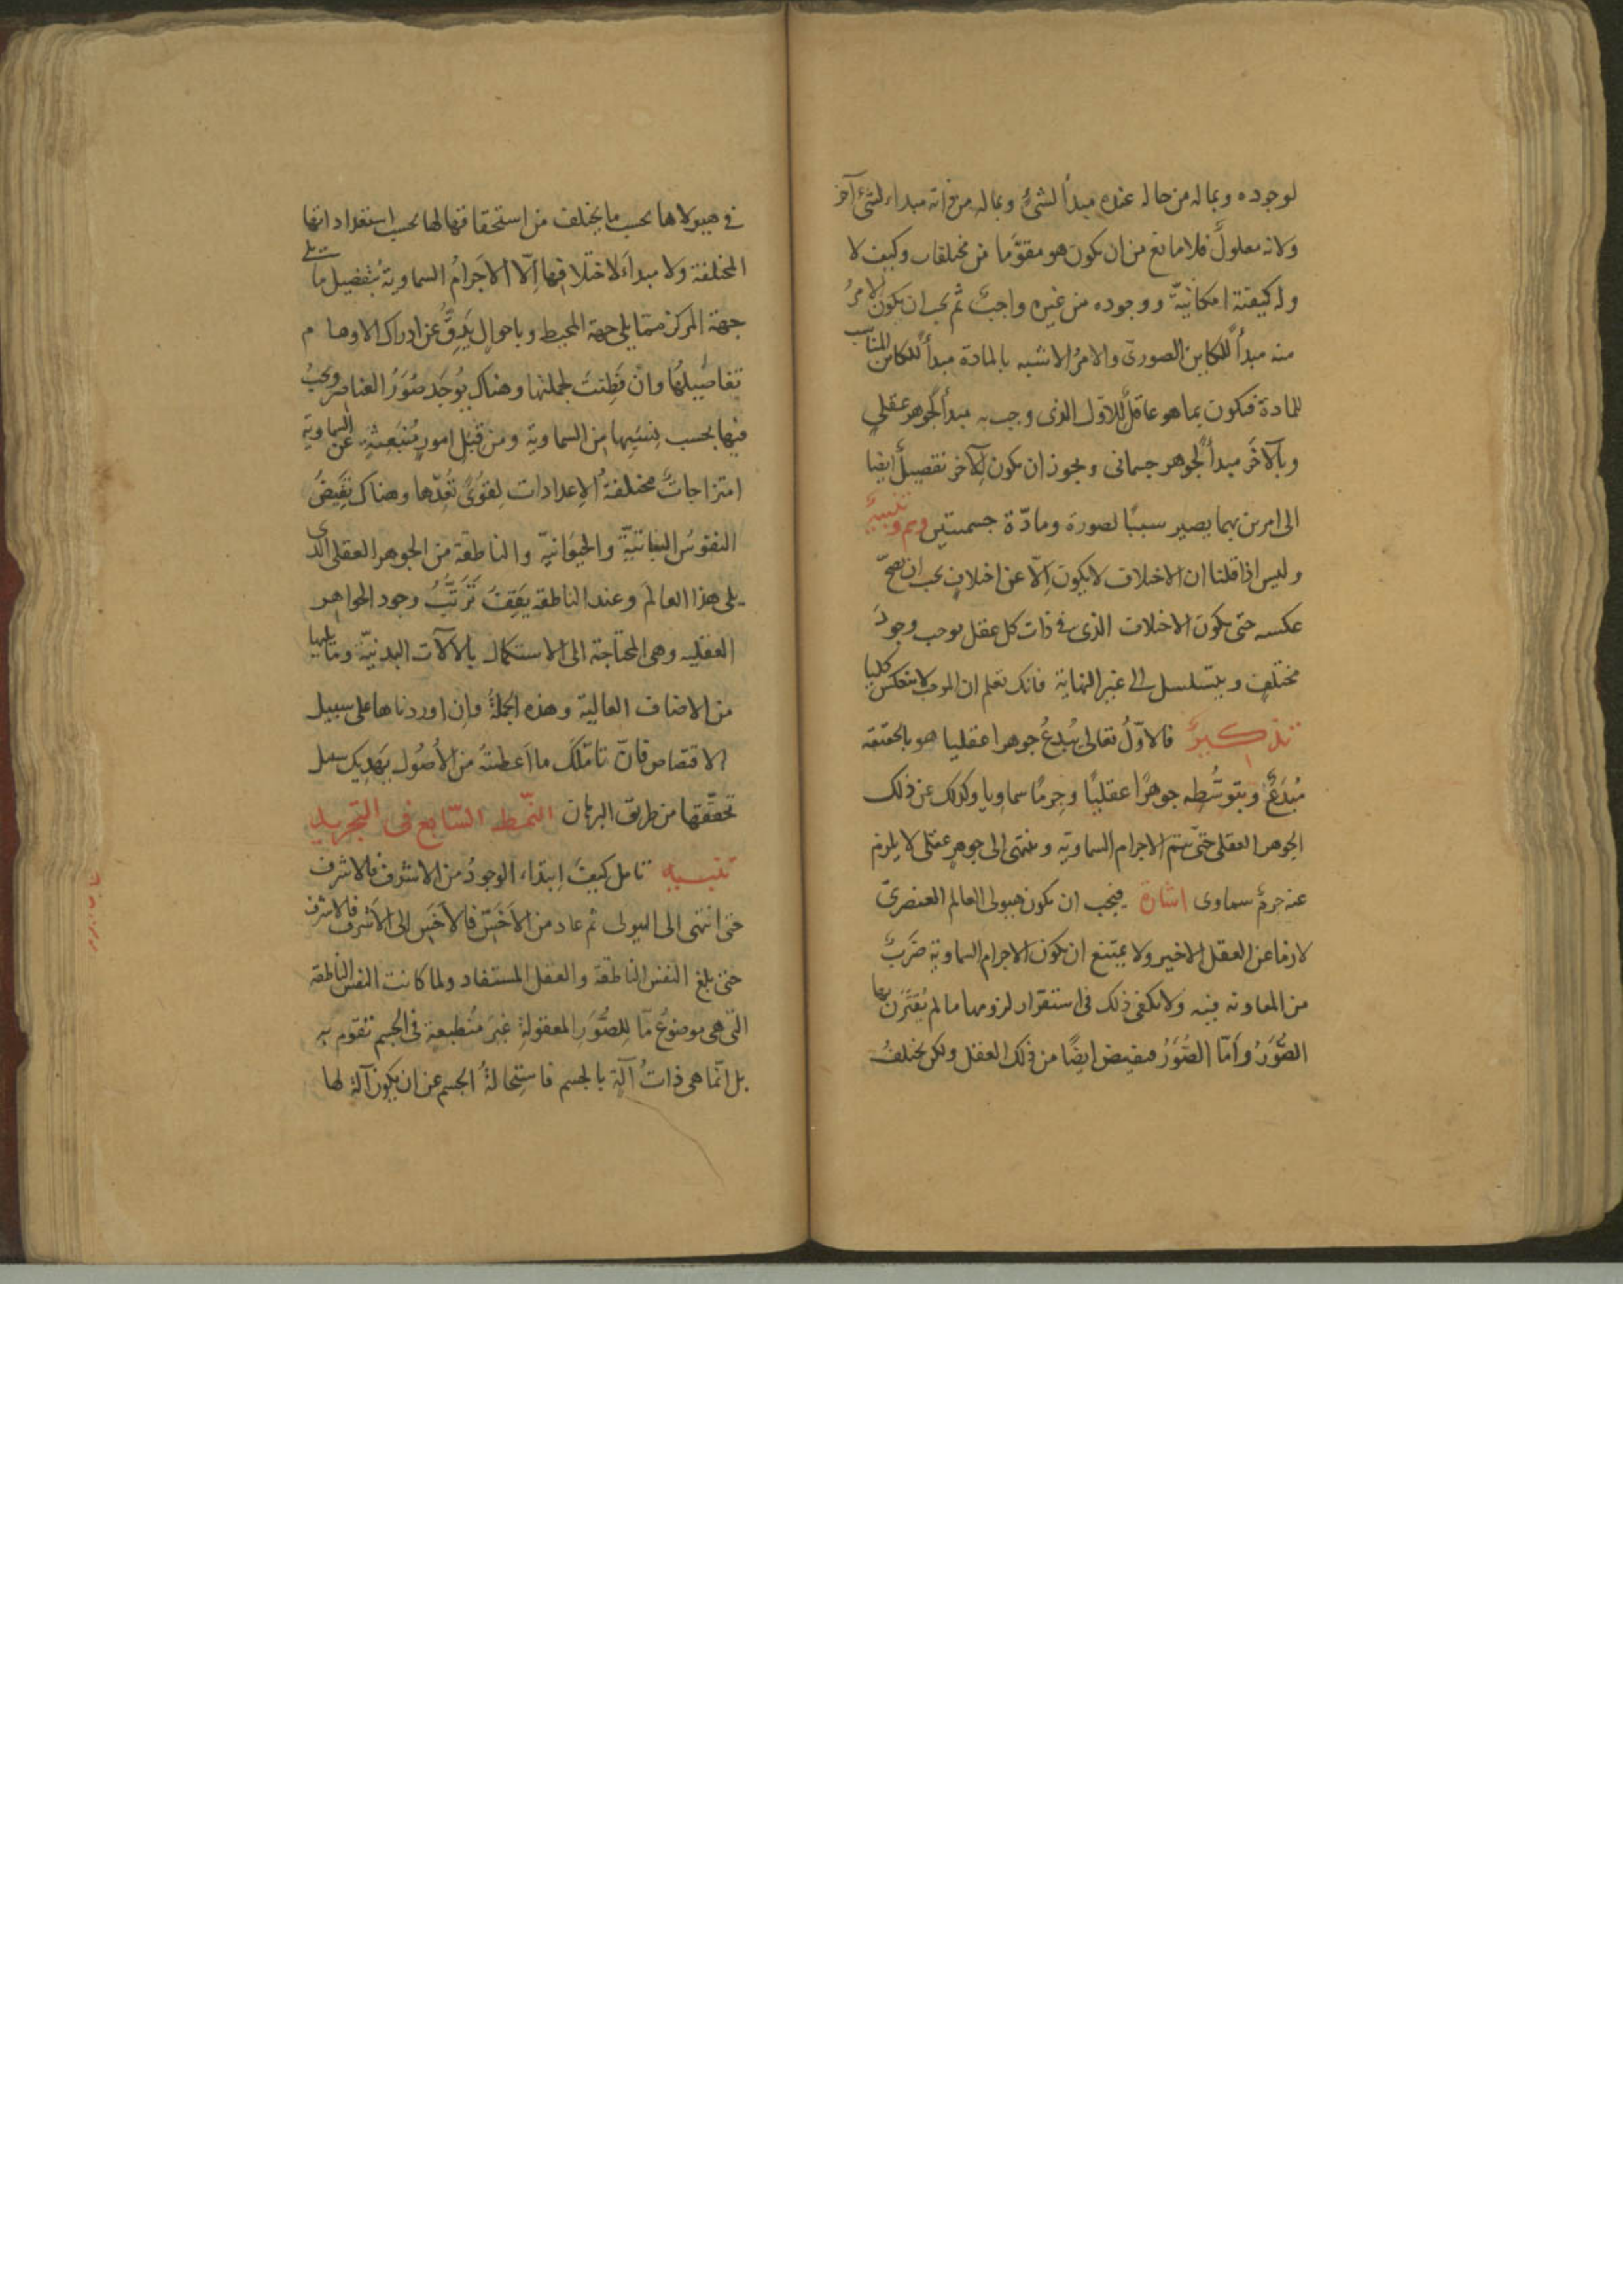 لوجوده وبماله من حاله عنده مبدأ لشئ وبماله من ذاته مبداء لشئ آخر
ولانه معلول فلا مانع من ان يكون هو مقوّما من مختلفات وكيف لا
وله كيفيّة امكانيّة ووجوده من غيره واجب ثم يجب ان يكون الامرُ
منه مبدأً للكاين الصورىّ والامرُ الاشبه بالمادة مبدأً للكاين المناسب
للمادة فيكون بما هو عاقل للاوّل الذى وجب به مبدأً لجوهر عقلى
وبالآخَر مبدأً لجوهر جسمانى ويجوز ان يكون للآخر تفصيلٌ ايضا
الى امرين بهما يصير سببًا لصورة ومادّة جسميتين وهم وتنبيهٌ
وليس اذا قلنا ان الاختلاف لا يكون اِلّا عن اختلافٍ يجب ان يصحّ
عكسه حتى يكون الاختلاف الذى فى ذات كل عقل يوجب وجودَ
مختلفٍ ويتسلسل الى غير النهاية فانك تعلم ان الموجب لا ينعكس كليا
تذكيرٌ فالاوّلُ تعالى يُبدعُ جوهرا عقليا هو بالحقيقه
مُبدَعٌ وبتوسُّطِه جوهرًا عقليًا وجِرمًا سماويا وكذلك عن ذلك
الجوهر العقلى حتّى يتم الاجرام السماويّه وينتهى الى جوهرٍ عقلى لا يلزم
عنه جرمٌ سماوى اشارة فيجب ان يكون هيولى العالم العنصرىّ
لازما عن العقل الاخير ولا يمتنع ان يكون الاجرام السماوية ضَربٌ
من المعاونه فيه ولا يكفى ذلك فى استقرار لزومها ما لم يُقترَن بها
الصُّوَرُ وَامّا الصُّوَرُ فيفيض ايضًا من ذلك العقل ولكن يختلفُ
فى هيولاها بحسب ما يختلف من استحقاقها لها بحسب استعداداتها
المختلفة ولا مبداَ لاختلافها اِلّا الاَجرامُ السماوية بتفصيل ما يلى
جهة المركز ممّا يلى جهة المحيط وباحوالٍ يَدِقُّ عن ادراك الاوهام
تفاصيلُها وان فَطِنتَ لجملتها وهناك يُوجَد صُوَرُ العناصر ويجبُ
فيها بحسب نِسَبِها من السماوية ومن قِبَلِ امورٍ مُنبَعِثةٍ عن السماوية
امتزاجاتٌ مختلفةُ الاِعدادات لِقوًى تُعِدّها وهناك تَفيضُ
النفوسُ النباتيّة والحيوانيّة والناطقة من الجوهر العقلى الذى
يلى هذا العالَم وعند الناطقه يَقِفُ تَرَتُّبُ وجود الجواهر
العقليه وهى المحتاجة الى الاستكمال بالآلات البدنيّة وما يليها
من الاضافات العالية وهذه الجملةُ وان اوردناها على سبيل
الاقتصاص فانّ تامّلك ما اَعطيتُهُ من الاُصُول يَهديك سبيل
تحقّقها من طريق البرهان النّمط السّابع فى التجريد
تنبيه تامل كيفَ اِبتداء الوجودُ من الاشرف فالاشرف
حتى انتهى الى الهيولى ثم عاد من الاَخَسّ فالاَخَسّ الى الاَشرف فالاشرف
حتى بلغ النفس الناطقة والعقل المستفاد ولما كانت النفس الناطقه
التى هى موضوعٌ مّا لِلصُّوَرِ المعقولةِ غيرَ مُنطبعةٍ فى الجسم تقوم به
بل انّما هى ذاتُ آلةٍ بالجسم فاستِحالةُ الجسم عن ان يكون آلة لها